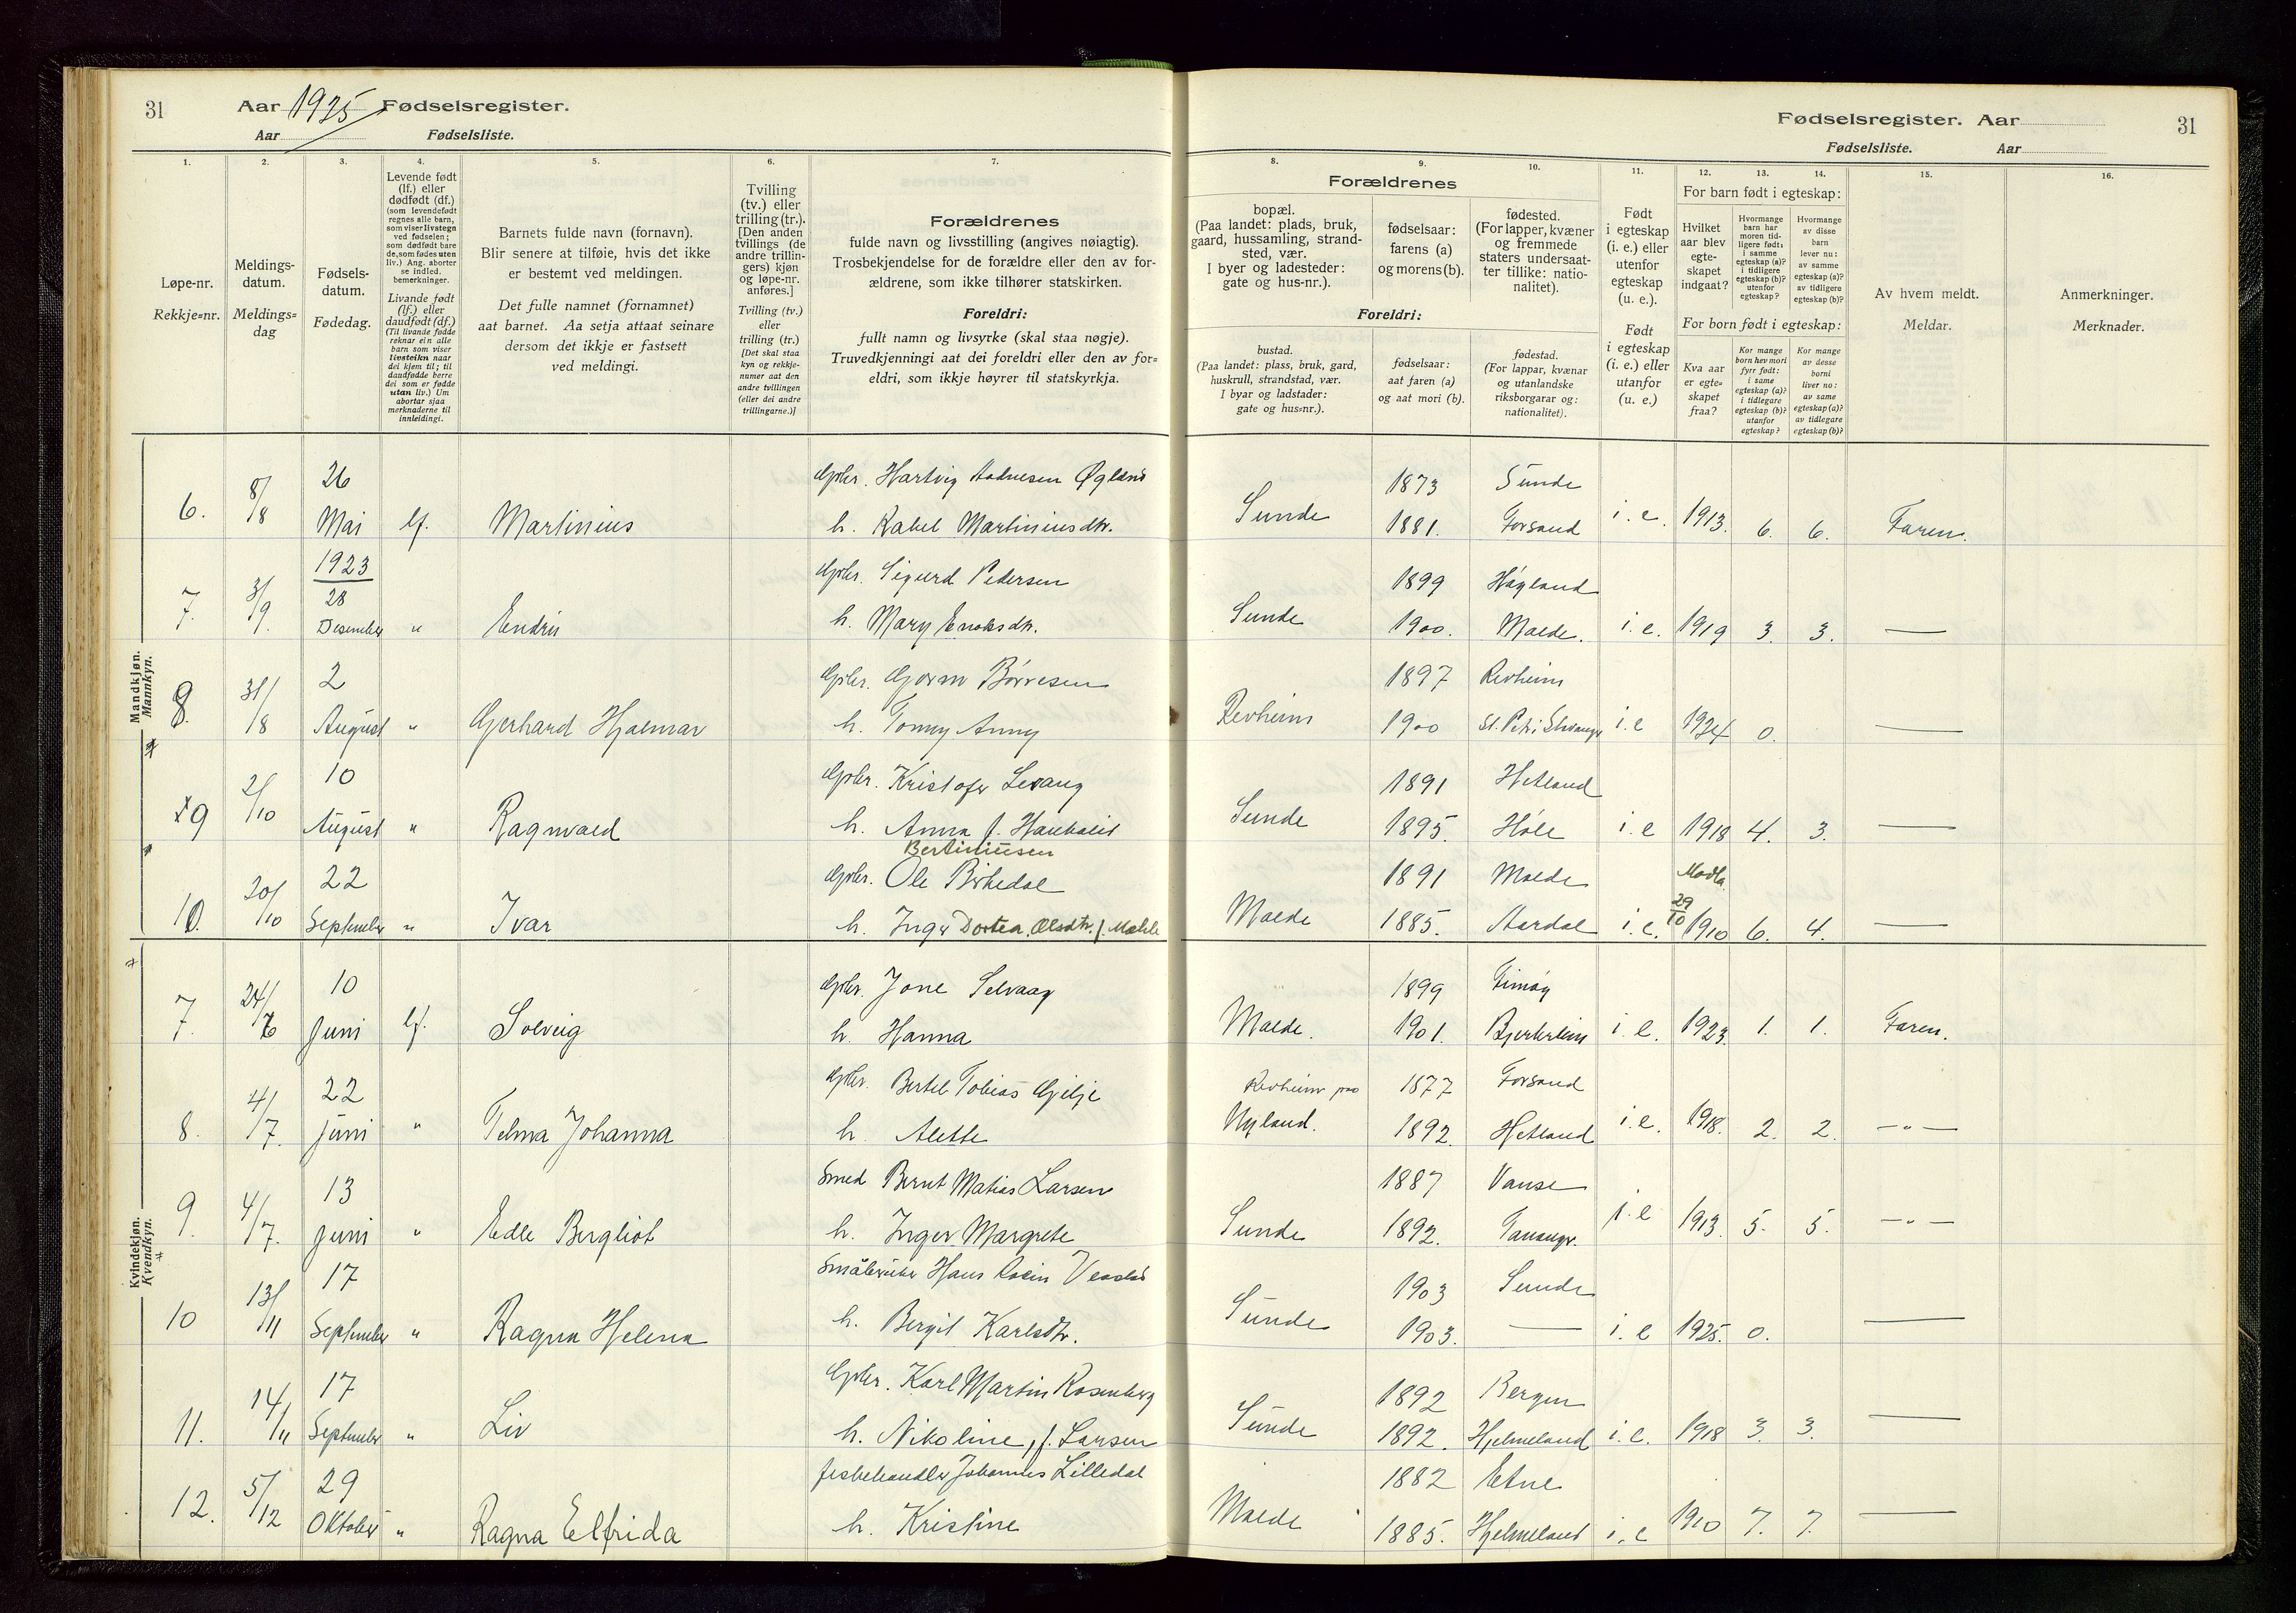 31 Aar 1925 Fødselsregister.
Aar Fødselsliste.
Fødselsregister. Aar 31
Fødselsliste. Aar
1. 2. 3. 4. 5. 6. 7. 8. 9. 10. 11. 12. 13. 14. 15. 16.
Løpe-nr.
Rekkje=nr.
Meldings-
datum.
Meldings=
dag
Fødsels-
datum.
Fødedag.
Levende født
(lf.) eller
dødfødt (df.)
(som levendefødt
regnes alle barn,
som viser livstegn
ved fødselen;
som dødfødt bare
de, som fødes uten
liv.) Ang. aborter
se indled.
bemerkninger.
Livande født
(lf.) eller
daudfødt (df.)
(Til livande fødde
reknar ein alle
barn som viser
livsteikn naar
dei kjem til; til
daudfødde berre
dei som er fødde
utan liv.) Um
abortar sjaa
merknaderne til
innleidingi.
Barnets fulde navn (fornavn).
Blir senere at tilføie, hvis det ikke
er bestemt ved meldingen.
Det fulle namnet (fornamnet)
aat barnet. Aa setja attaat seinare
dersom det ikkje er fastsett
ved meldingi.
Tvilling
(tv.) eller
trilling (tr.).
[Den anden
tvillings (de
andre trillin-
gers) kjøn
og løpe-nr.
anføres.]
Tvilling (tv.)
eller
trilling (tr.)
[Det skal staa
kyn og rekkje-
numer aat den
andre tvillingen
(eller dei andre
trillingarne.)]
Forældrenes
fulde navn og livsstilling (angives nøiagtig).
Trosbekjendelse for de forældre eller den av for-
ældrene, som ikke tilhører statskirken.
Foreldri:
fullt namn og livsyrke (skal staa nøgje).
Truvedkjenningi aat dei foreldri eller den av for=
eldri, som ikkje høyrer til statskyrkja.
Forældrenes
bopæl.
(Paa landet: plads, bruk,
gaard, hussamling, strand-
sted, vær.
I byer og ladesteder:
gate og hus-nr.).
fødselsaar:
farens (a)
og morens (b).
fødested.
(For lapper, kvæner
og fremmede
staters undersaat-
ter tillike: natio-
nalitet).
Foreldri:
bustad.
(Paa landet: plass, bruk, gard,
huskrull, strandstad, vær.
I byar og ladstader:
gate og hus=nr.).
fødselsaar:
aat faren (a)
og aat mori (b).
fødestad.
(For lappar, kvænar
og utanlandske
riksborgarar og:
nationalitet).
Født
i egteskap
(i. e.) eller
utenfor
egteskap
(u. e.).
Født
i egteskap
(i. e.) eller
utanfor
(u. e.)
For barn født i egteskap:
Hvilket
aar blev
egte-
skapet
indgaat?
Hvormange
barn har
moren tid-
ligere født:
i samme
egteskap (a)?
i tidligere
egteskap (b)?
utenfor
egteskap?
Hvormange
av disse
barn
lever nu:
av samme
egteskap (a)?
av tidligere
egteskap (b)?
For born født i egteskap:
Kva aar
er egte=
skapet
fraa?
Kor mange
born hev mori
fyrr født:
i same
egteskap (a)?
i tidlegare
egteskap (b)?
utanfor
egteskap?
Kor mange
av desse
borni
liver no:
av same
egteskap (a)?
av tidlegare
egteskap (b)?
Av hvem meldt.
Meldar.
Anmerkninger.
Merknader.
Mandkjøn.
Mannkyn.
26 Gbr. Hartvig Aadnesen Øgland 1873 Sunde
6. 8/8 Mai lf. Martinius h. Rakel Martiniusdtr. Sunde 1881. Forsand i. e. 1913. 6. 6. Faren.
1923
28 Gbr. Sigurd Pedersen 1899 Høyland
7. 3/9. Desember " Endre h. Mary Enoksdtr. Sunde 1900. Malde. i. e. 1919 3. 3. —
2 Gbr. Gorm Børresen 1897 Revheim
8. 31/8 August " Gerhard Hjalmar h. Tonny Anny Revheim 1900 St. Petri Stavanger i. e 1924 0. —
10 Gbr. Kristofer Levang 1891 Hetland
9 2/10 August " Ragnvald h. Anna f. Haukalid Sunde 1895. Høle i. e 1918 4. 3. —
Bertiniusen
22 Gbr. Ole Birkedal 1891 Malde Madla
10. 20/10 September " Ivar h. Inger Dortea Olsdtr. f. Mæhle Malde 1885. Aardal i. e. 29/10 1910 6. 4. —
Kvindekjøn.
Kvendkyn.
10 Gbr. Jone Selvaag 1899 Finnøy
7. 24/6 Juni lf. Solveig h. Hanna Malde. 1901. Bjerkreim i. e. 1923. 1. 1. Faren.
22 Gbr. Bertel Tobias Gilje Revheim paa 1877 Forsand
8. 4/7. Juni " Telma Johanna h. Alette Nyland. 1892. Hetland i. e. 1918. 2. 2. — " —
13 Smed Bernt Matias Larsen 1887 Vanse
9. 4/7. Juni " Edle Bergliot h. Inger Margrete Sunde 1892. Tananger. i. e 1913. 5. 5. — " —
17 Småbruker Hans 1903 Sunde
10 13/11 September " Ragna Helena h. Bergit Karlsdtr. Sunde 1903. — i. e 1925. 0. —
17 Gbr. Karl Martin Rosenberg 1892 Bergen
11. 14/11 September " Liv h. Nikoline, f. Larsen Sunde 1892. Hjelmeland i. e. 1918 3. 3. —
29 fiskehandler Johannes Lilledal 1882 Etne
12. 5/12 Oktober " Ragna Elfrida h. Kristine Malde 1885. Hjelmeland i. e 1910 7. 7. —